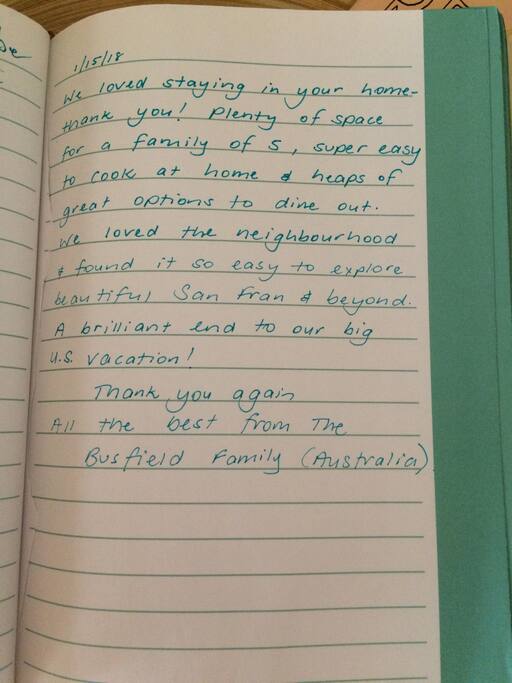 1/15/18
We loved staying in your home-
thank you! Plenty of space
for a family of 5, super easy
to cook at home & heaps of
great options to dine out.
We loved the neighbourhood
& found it so easy to explore
beautiful San Fran & beyond.
A brilliant end to our big
U.S. vacation!
Thank you again
All the best from The
Busfield Family (Australia)